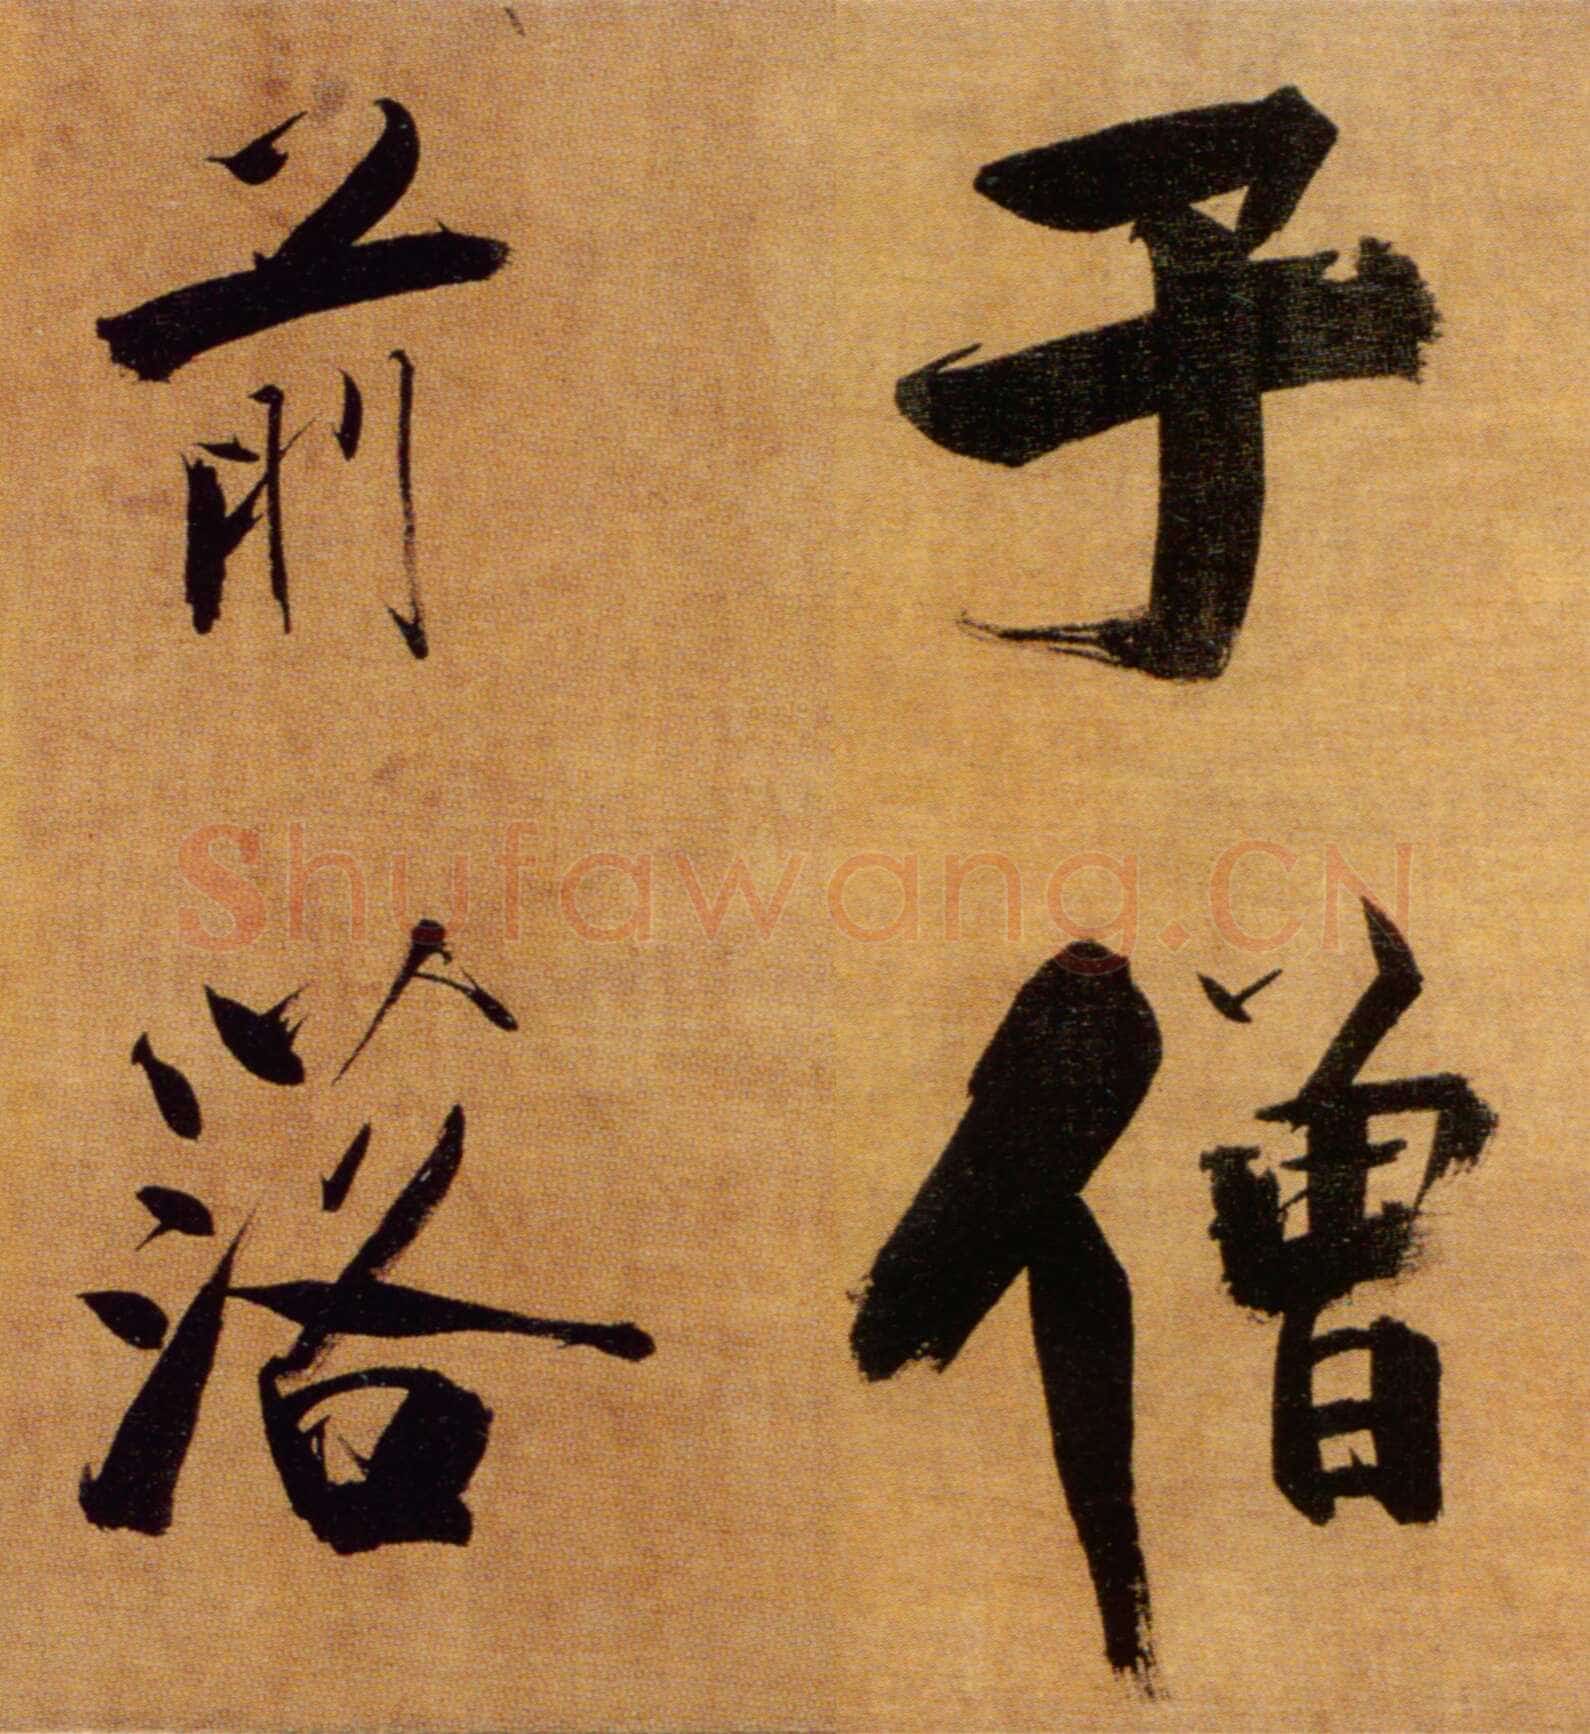 子僧
前落
Shufawang.CN